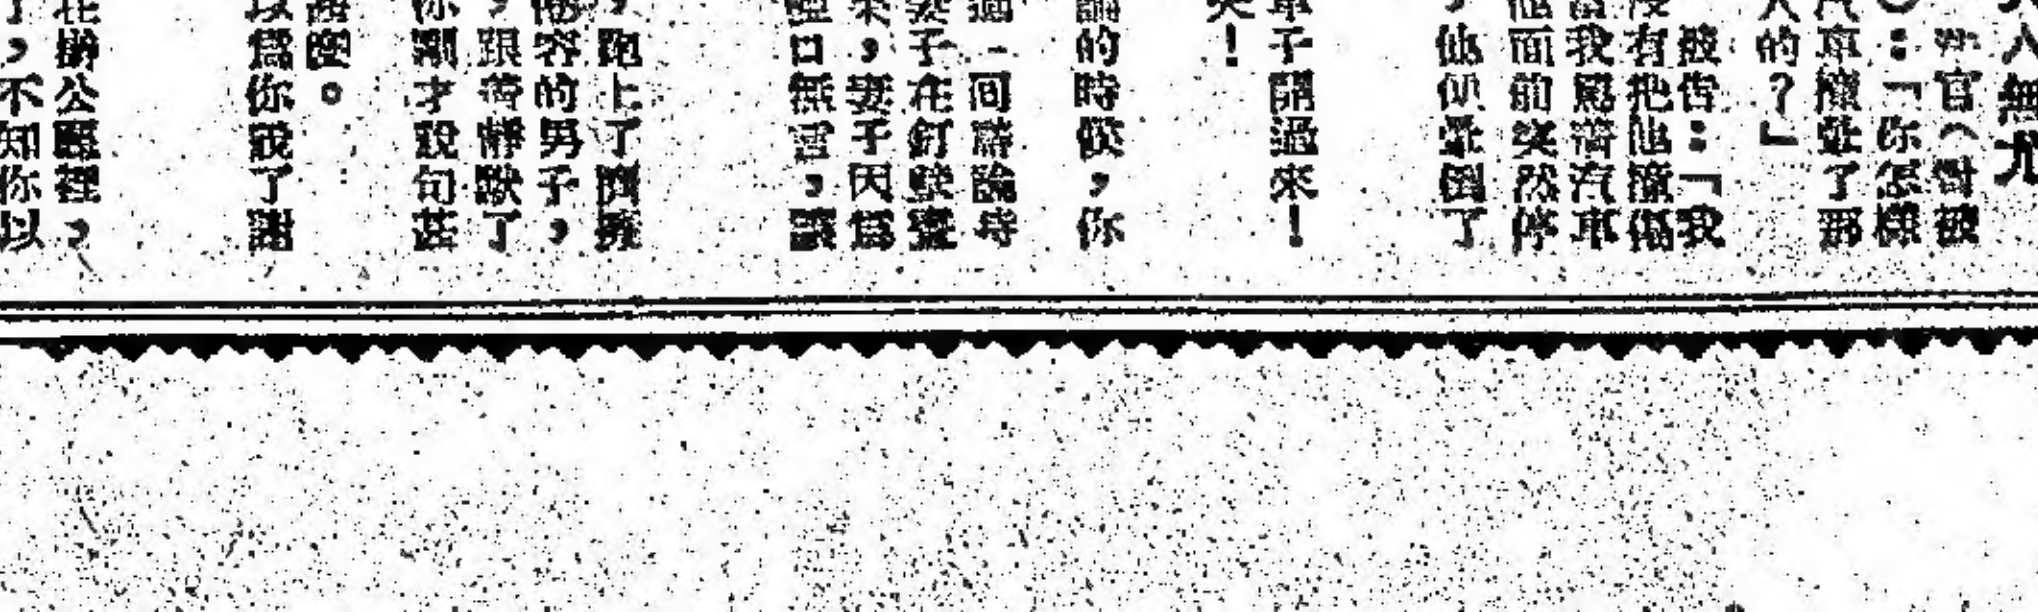 人無尤
官（對被
：「你怎樣
汽車撞暈了那
人的？」
被告：「我
沒有把他撞傷
當我駕着汽車
他面前突然停
他便暈倒了
車子開過來！
！
論的時候，你
過一回辯論時
妻子在釘
來，妻子因爲
啞口無言，讓
，跑上了
容的男子，
，跟着靜默了
你剛才說句甚
。
以爲你說了謝
在辦公廳裡，
了，不知你以